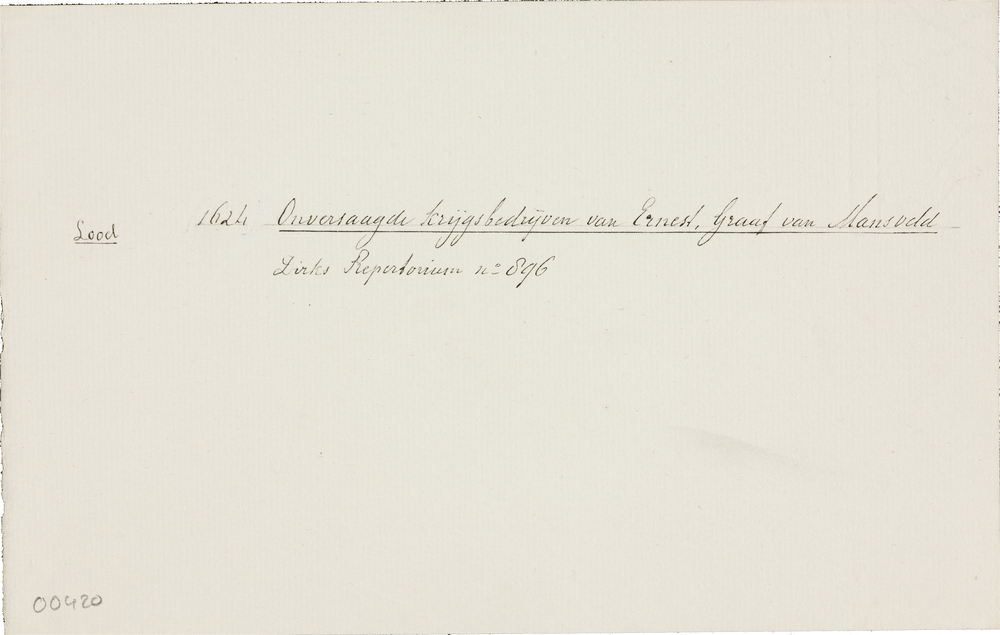 Lood
1624 Onversaagde krijgsbedrijven van Ernest, Graaf van Mansveld
Dirks Repertorium no 896
00420